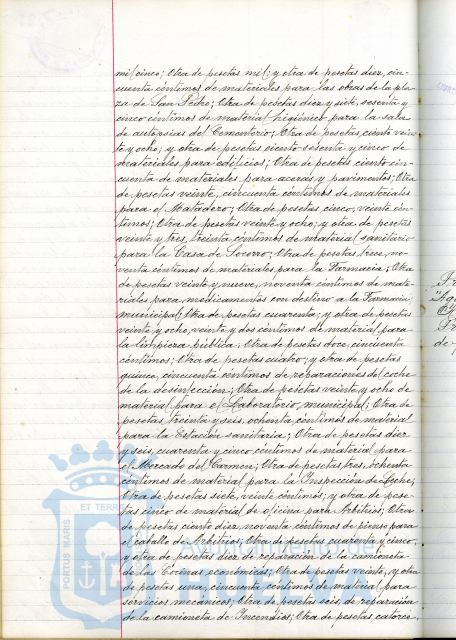 mil cinco; Otra de pesetas mil; y otra de pesetas diez, cin-
cuenta céntimos de materiales para las obras de la pla-
za de San Pedro; Otra de pesetas diez y siete, sesenta y
cinco céntimos de material higiénico para la sala
de autopsias del Cementerio; Otra de pesetas, ciento vein-
te y ocho; y otra de pesetas ciento sesenta y cinco de
materiales para edificios; Otra de pesetas ciento cin-
cuenta de materiales para aceras y pavimentos; Otra
de pesetas veinte, cincuenta céntimos de materiales
para el Matadero; Otra de pesetas, cinco, veinte cén-
timos; Otra de pesetas veinte y ocho; y otra de pesetas
veinte y tres, treinta céntimos de material sanitario
para la Casa de Socorro; Otra de pesetas trece, no-
venta céntimos de materiales para la Farmacia; Otra
de pesetas veinte y nueve, noventa céntimos de mate-
riales para medicamentos con destino a la Farmacia
municipal; Otra de pesetas cuarenta; y otra de pesetas
veinte y ocho, veinte y dos céntimos de material para
la limpieza pública; Otra de pesetas doce, cincuenta
céntimos; Otra de pesetas cuatro; y otra de pesetas
quince, cincuenta céntimos de reparaciones del coche
de la desinfección; Otra de pesetas veinte y ocho de
material para el Laboratorio municipal; Otra de
pesetas treinta y seis, ochenta céntimos de material
para la Estación sanitaria; Otra de pesetas diez
y seis, cuarenta y cinco céntimos de material para
el Mercado del Carmen; Otra de pesetas tres, ochenta
céntimos de material para la Inspección de Leche;
Otra de pesetas siete, veinte céntimos; y otra de pese-
tas cinco de material de oficina para Arbitrios; Otra
de pesetas ciento diez, noventa céntimos de pienso para
el caballo de Arbitrios; Otra de pesetas cuarenta y cinco,
y otra de pesetas diez de reparación de la camioneta
de las Cocinas económicas; Otra de pesetas veinte, y otra
de pesetas una, cincuenta céntimos de material para
servicios mecánicos; Otra de pesetas seis de reparación
de la camioneta de Incendios; Otra de pesetas catorce
PORTUS MARIS
ET TERRÆ
HUELVA